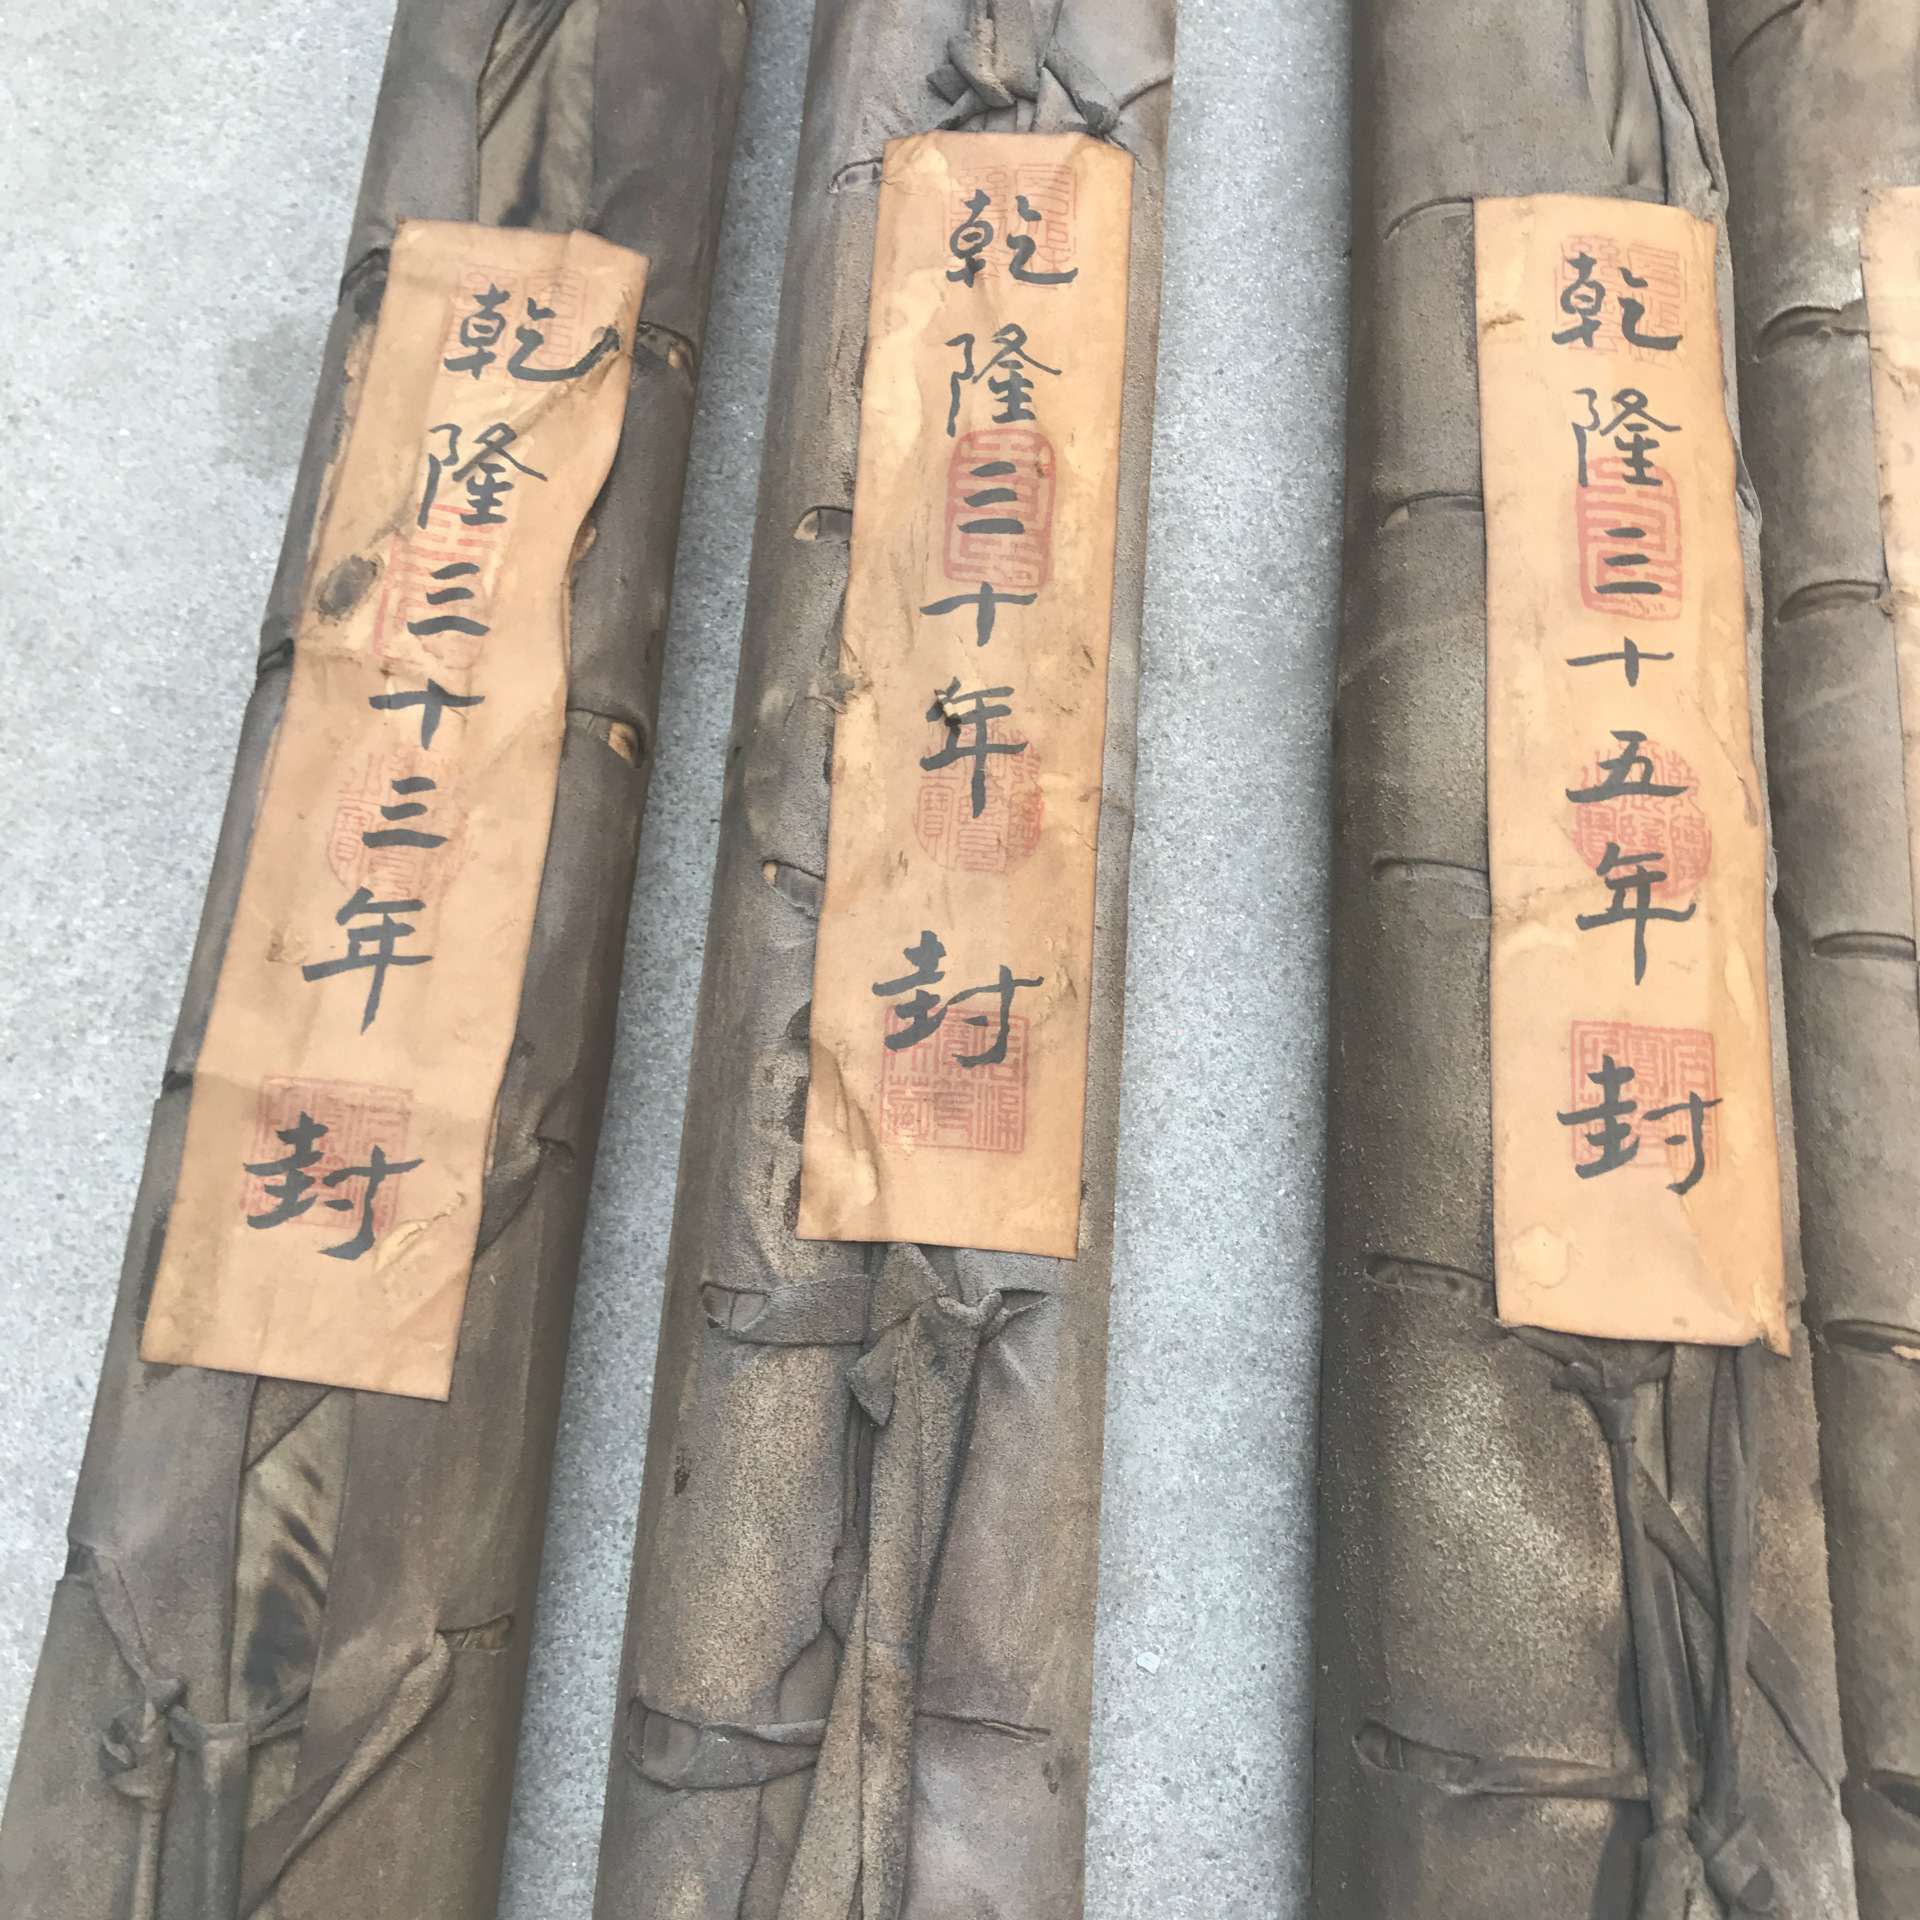 乾隆三十三年封
乾隆三十年封
乾隆三十五年封